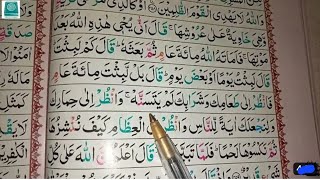 وَاللّٰهُ لَا يَهْدِى الْقَوْمَ الظّٰلِمِيْنَ اَوْ كَالَّذِىْ مَرَّ
وَّهِىَ خَاوِيَةٌ عَلٰى عُرُوْشِهَا ۚ قَالَ اَنّٰى يُحْىٖ هٰذِهِ اللّٰهُ بَعْدَ
مَوْتِهَا ۚ فَاَمَاتَهُ اللّٰهُ مِائَةَ عَامٍ ثُمَّ بَعَثَهٗ ؕ قَالَ كَمْ لَبِثْتَ ؕ
قَالَ لَبِثْتُ يَوْمًا اَوْ بَعْضَ يَوْمٍ ؕ قَالَ بَلْ لَّبِثْتَ مِائَةَ عَامٍ
فَانْظُرْ اِلٰى طَعَامِكَ وَشَرَابِكَ لَمْ يَتَسَنَّهْ ۚ وَانْظُرْ اِلٰى حِمَارِكَ
وَلِنَجْعَلَكَ اٰيَةً لِّلنَّاسِ وَانْظُرْ اِلَى الْعِظَامِ كَيْفَ نُنْشِزُهَا
ثُمَّ نَكْسُوْهَا لَحْمًا ؕ فَلَمَّا تَبَيَّنَ لَهٗ ۙ قَالَ اَعْلَمُ اَنَّ اللّٰهَ عَلٰى كُلِّ